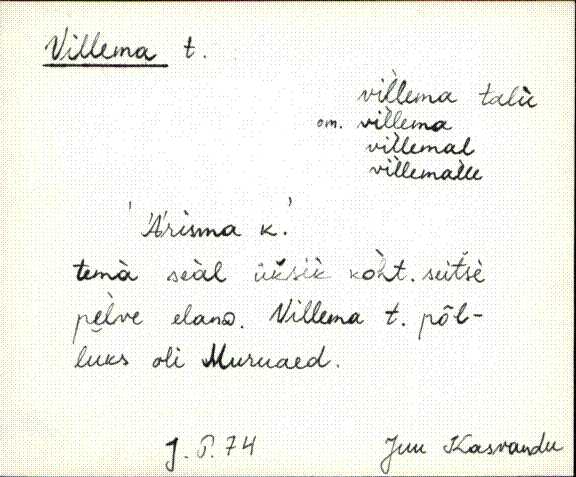 Villema t.
vìllema talù
om. vìllema
vìllemal
vìllemalle
'Ärisma k.'
temà seàl ükšik kòht. seitšè
pè̮lve elanò. Villema t. põl-
luks oli Muruaed.
J. P. 74 Juu Kasvandu